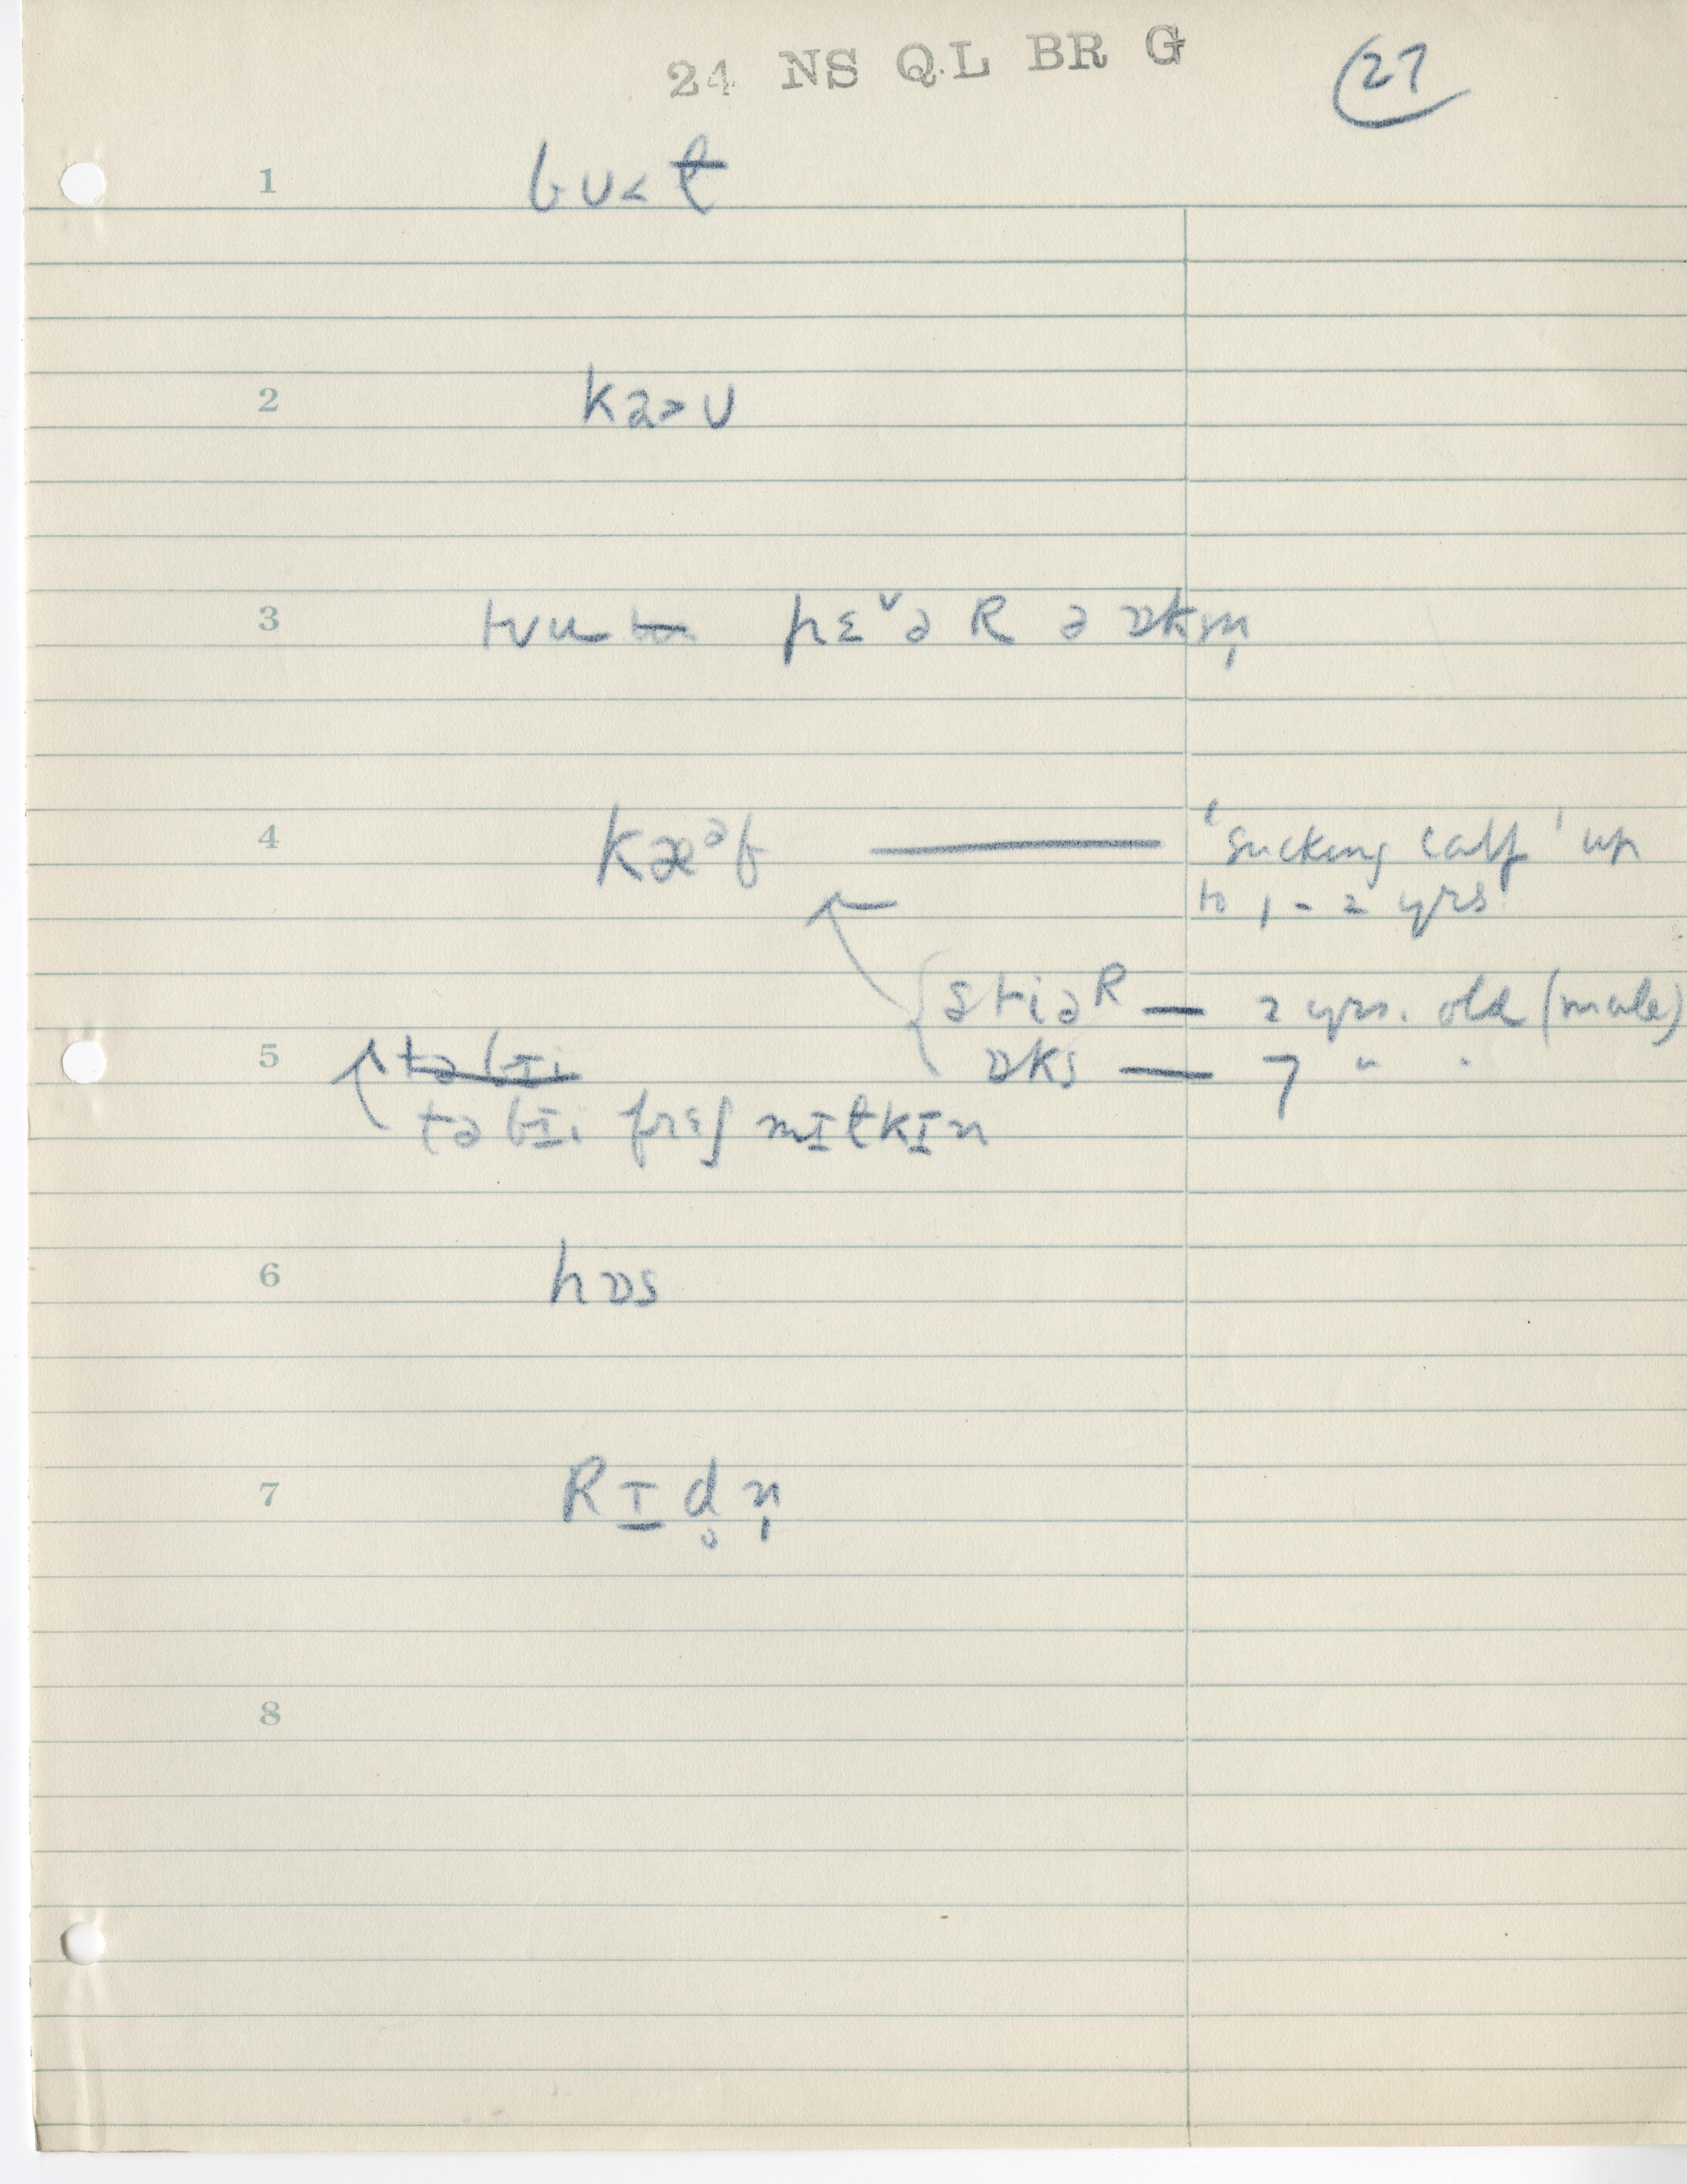 24 NS QL BR G
27
1 bʊ˂t̶
2 ka˃ʊ
3 tu pɛˇə R ə ɒksn̩
4 kæᵊf — 'sucking calf' up
to 1 - 2 yrs.
stiəR — 2 yrs. old (male)
5 tə bɪi ɒks — 7 " "
tə bɪi frɛʃ mɪlkɪn
6 hɒs
7 Rɪd̥n̩
8